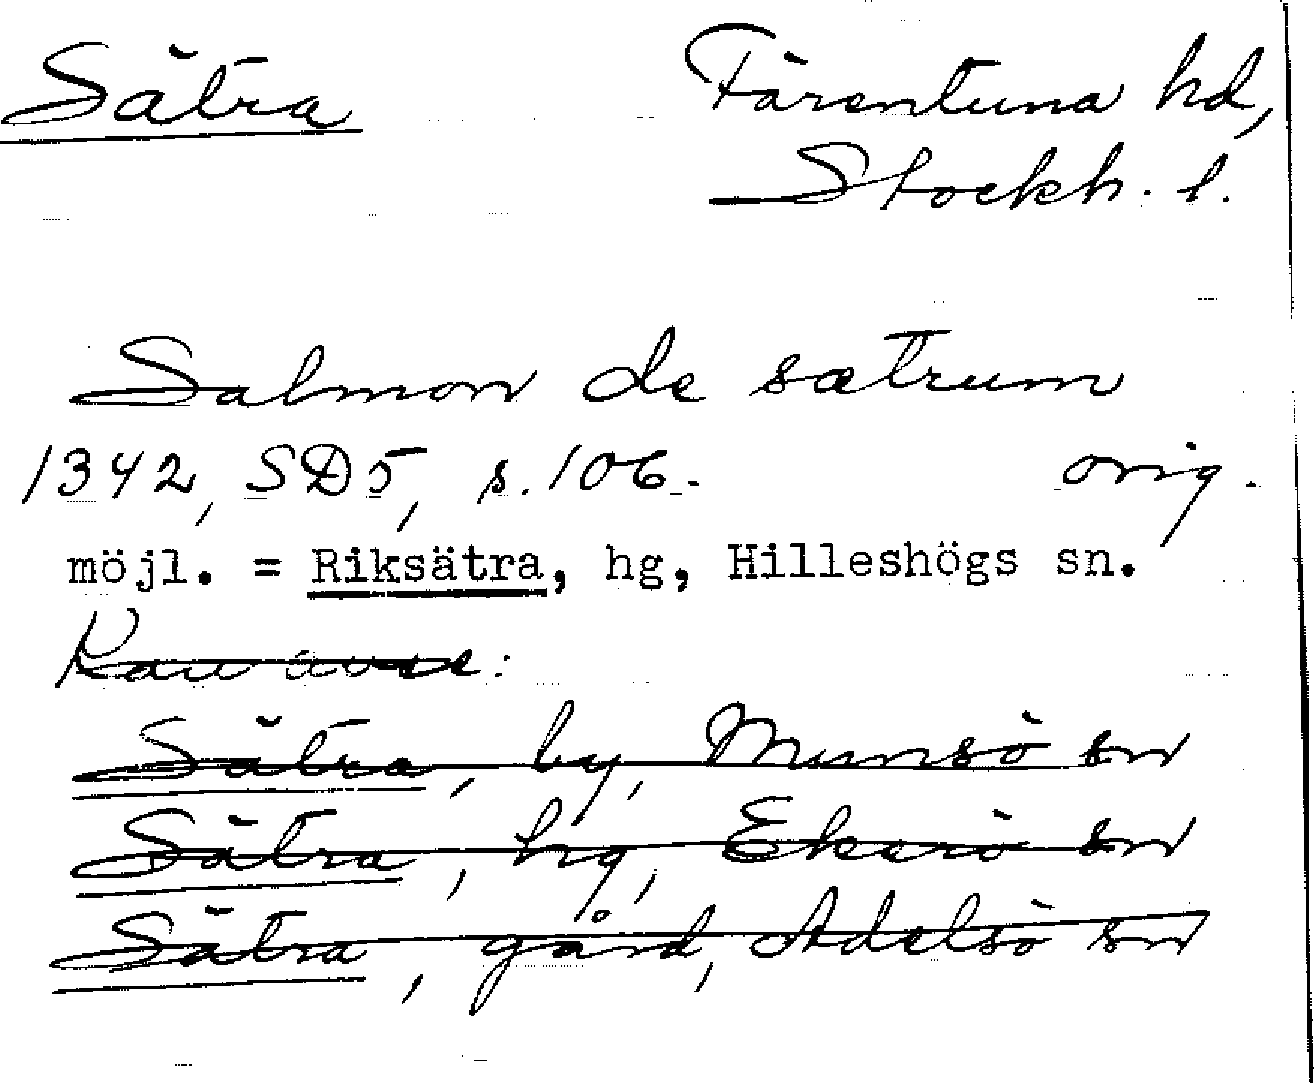 Sätra Färentuna hd,
Stockh. l.
Salmon de sætrum
1342, SD5, s. 106. orig.
möjl. = Riksätra, hg, Hilleshögs sn.
Kan avse:
Sätra, by, Munsö sn
Sätra, hg, Ekerö sn
Sätra, gård, Adelsö sn